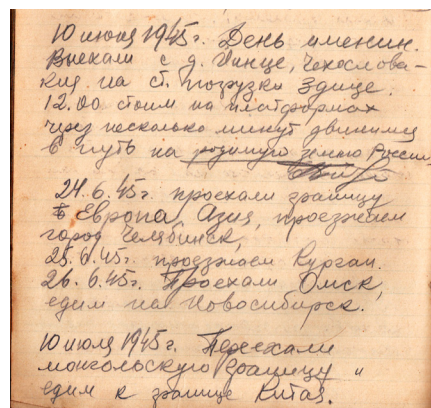 10 июня 1945г. День именин.
Выехали с д. Гинце, Чехослова-
кия на ст. погрузки Здице.
12.00 стоим на платформах
через несколько минут двинемся
в путь на родимую землю России
24.6.45г. проехали границу
Европа Азия, проезжаем
город Челябинск,
25.6.45г. проезжаем Курган.
26.6.45г. Проехали Омск,
едим на Новосибирск.
10 июля 1945г. Переехали
монгольскую границу и
едим к границе Китая.